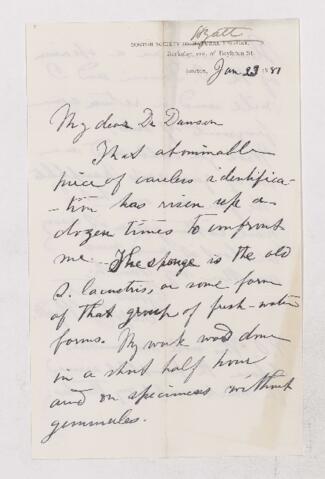 Hyatt
BOSTON SOCIETY OF NATURAL HISTORY,
Berkeley, cor. of Boylston St.
Boston, Jan 23 1887
My dear Dr Dawson
That abominable
piece of careless identifica-
tion has risen up a
dozen times to confront
me. The sponge is the old
S. lacustris, or some form
of that group of fresh-water
forms. My work was done
in a short half hour
and on specimens without
gemmules.